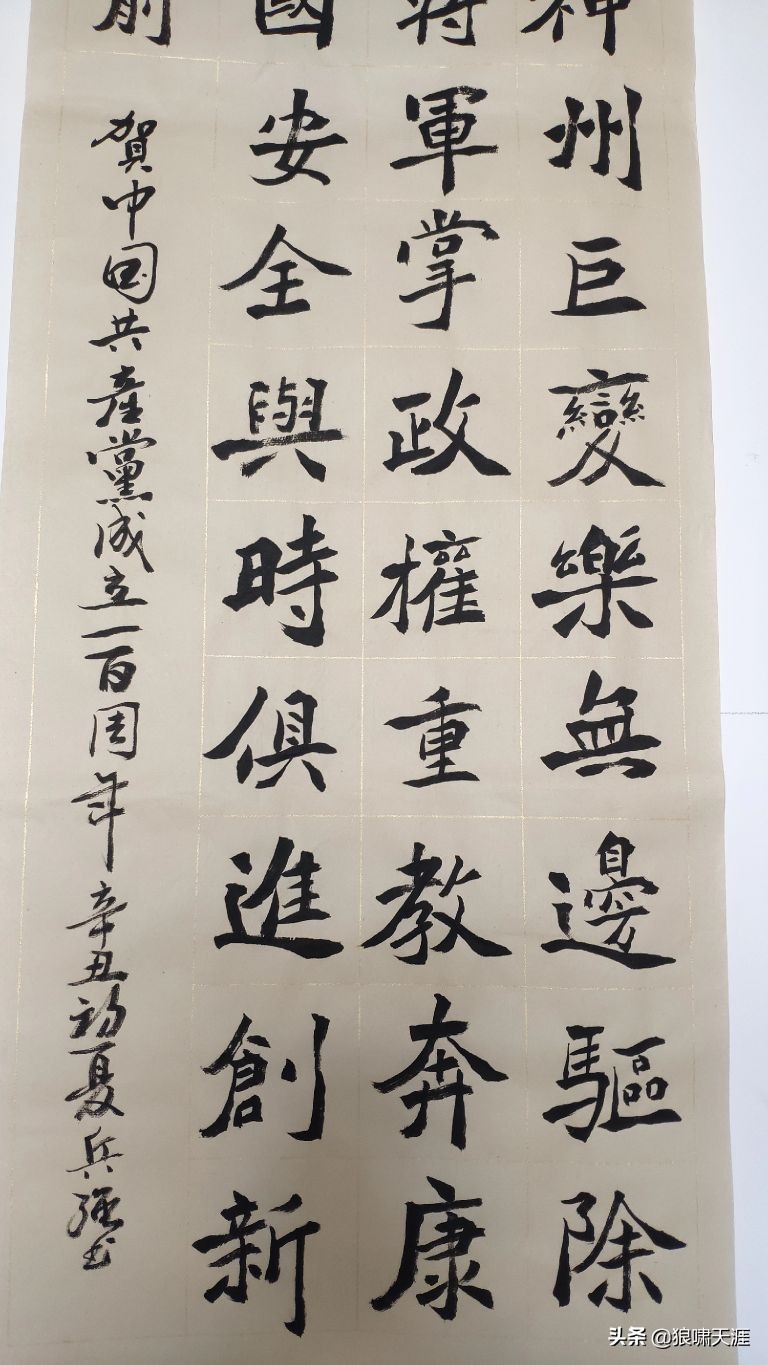 神州巨變樂無邊驅除
將軍掌政權重教奔康
國安全與時俱進創新
前
賀中国共產黨成立一百周年辛丑初夏兵強书
头条 @狼啸天涯